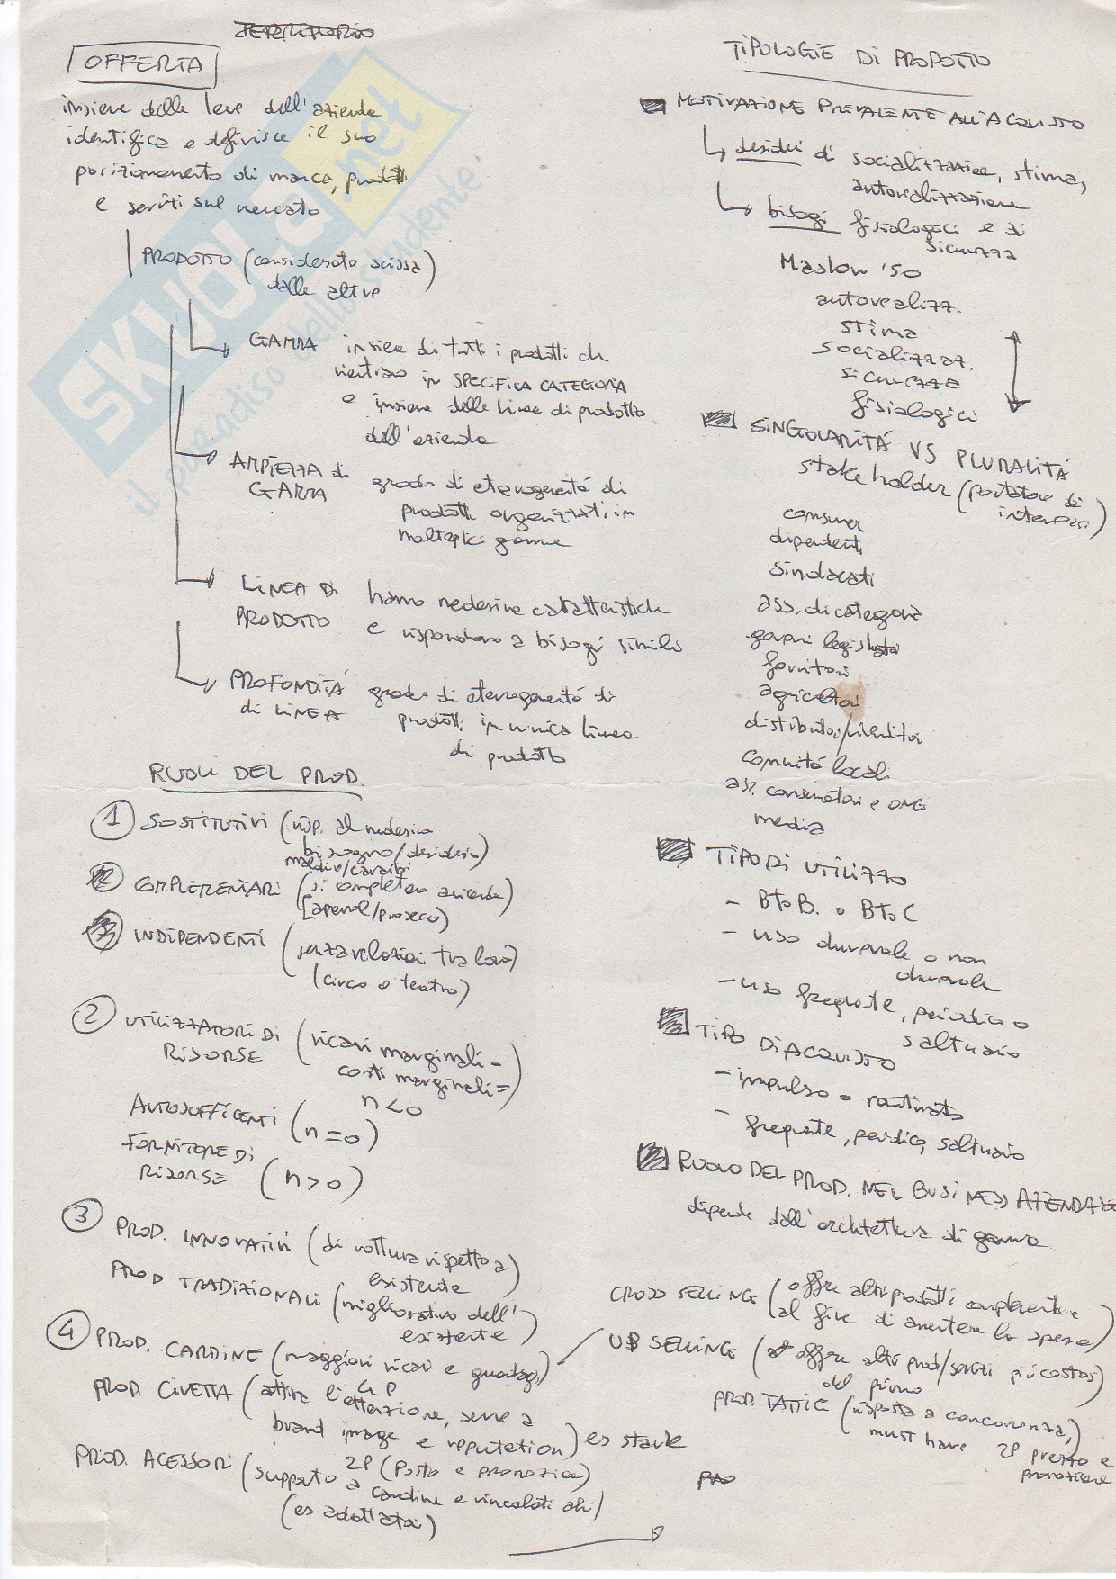 OFFERTA
insieme delle leve dell'azienda
identifica e definisce il suo
posizionamento di marca, prodotti
e servizi sul mercato
PRODOTTO (considerato scissa
dalle altre)
GAMMA insieme di tutti i prodotti che
rientrano in SPECIFICA CATEGORIA
e insieme delle linee di prodotto
dell'azienda
AMPIEZZA di
GAMMA
grado di eterogeneità di
prodotti organizzati in
molteplici gamme
LINEA DI
PRODOTTO
hanno medesime caratteristiche
e rispondono a bisogni simili
PROFONDITÁ
di LINEA
grado di eterogeneità di
prodotti in unica linea
di prodotto
RUOLI DEL PROD.
1 SOSTITUTIVI (risp. al medesimo
bisogno/desiderio)
maldive/caraibi
COMPLEMENTARI (si completano a vicenda)
[aperol/prosecco)
INDIPENDENTI (senza relazioni tra loro)
(circo o teatro)
2 UTILIZZATORI DI
RISORSE
(ricavi marginali -
costi marginali =)
n<0
AUTOSUFFICENTI (n=0)
FORNITORE DI
RISORSE (n>0)
3 PROD. INNOVATIVI (di rottura rispetto a
esistente)
PROD TRADIZIONALI (migliorativo dell'
esistente)
4 PROD. CARDINE (maggiori ricavi e guadagni)
4 P
PROD. CIVETTA (attira l'attenzione, serve a
brand image e reputation) es stark
2P (Posto e promozione)
PROD. ACESSORI (supporto a cardine e vincolati ad)
(es adattatori)
TIPOLOGIE DI PRODOTTO
MOTIVAZIONE PREVALENTE ALL'ACQUISTO
desideri di socializzazione, stima,
autorealizzazione
bisogni fisiologici e di
sicurezza
Maslow '50
autorealizz.
stima
socializzaz.
sicurezza
fisiologici
SINGOLARITÁ VS PLURALITÁ
stakeholder (portatore di
interessi)
consumer
dipendenti
sindacati
ass. di categoria
governi
fornitori
agricoltori
distributori/rivenditori
comunità locali
ass. consumatori e ONG
media
TIPO DI UTILIZZO
- BtoB. o BtoC
- uso durevole o non
durevole
- uso frequente, periodico o
saltuario
TIPO DI ACQUISTO
- impulso o routinato
- frequente, periodico, saltuario
RUOLO DEL PROD. NEL BUSINESS AZIENDALE
dipende dall'architettura di gamma
CROSS SELLING (offre altri prodotti complementari
al fine di aumentare la spesa)
UP SELLING (offre altri prod/servizi più costosi
del primo
PROD. TATTIC (risposta a concorrenza,)
must have 2P prezzo e
promozione
SKUOLA.net
il paradiso dello studente